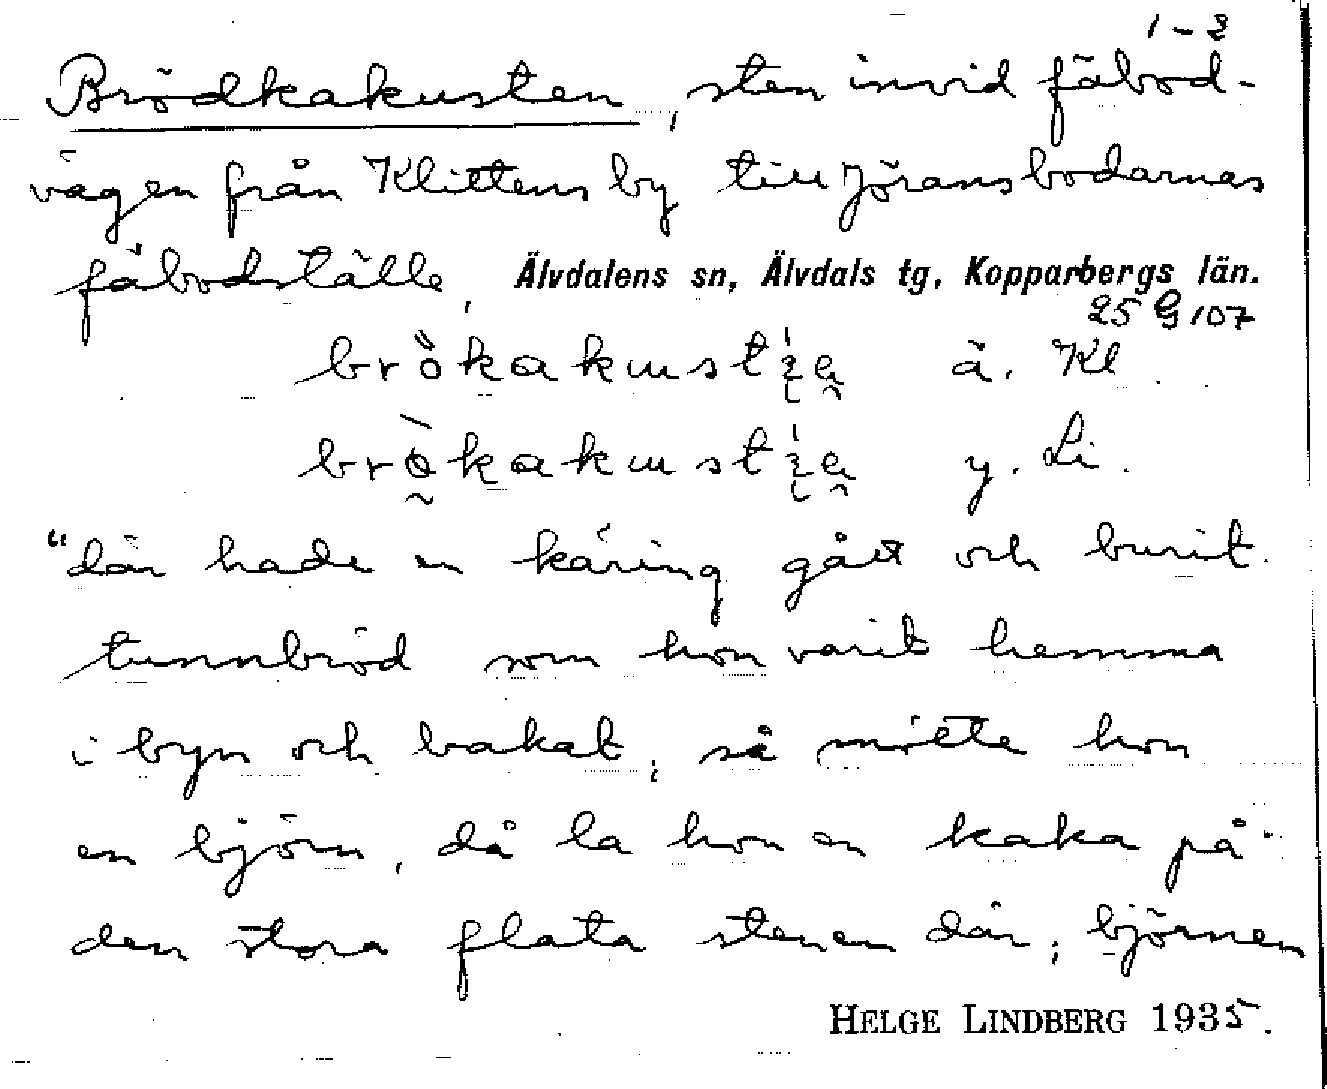 1-2
Brödkakusten, sten invid fäbod-
vägen från Klittens by till Jöransbodarnas
fäbodställe, Älvdalens sn, Älvdals tg, Kopparbergs län.
25 G 107
ä. Kl
y. Li.
"där hade en käring gått och burit
tunnbröd som hon varit hemma
i byn och bakat; så mötte hon
en björn, då la hon en kaka på
den stora flata stenen där; björnen
HELGE LINDBERG 1935.